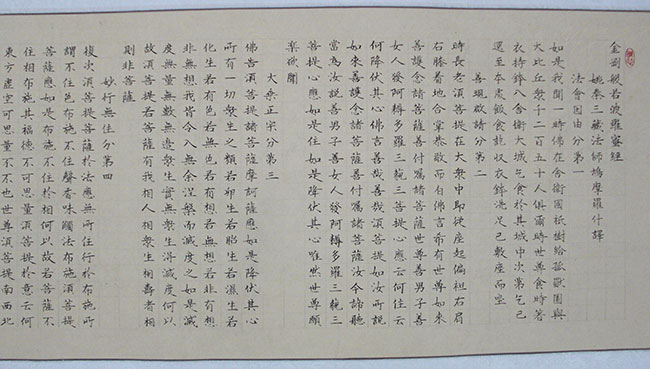 金剛般若波羅蜜經
姚秦三藏法師鳩摩羅什譯
法會因由分第一
如是我聞一時佛在舍衛國祇樹給孤獨園與
大比丘眾千二百五十人俱爾時世尊食時著
衣持鉢入舍衛大城乞食於其城中次第乞已
還至本處飯食訖收衣鉢洗足已敷座而坐
善現啟請分第二
時長老須菩提在大眾中即從座起偏袒右肩
右膝著地合掌恭敬而白佛言希有世尊如來
善護念諸菩薩善付囑諸菩薩世尊善男子善
女人發阿耨多羅三藐三菩提心應云何住云
何降伏其心佛言善哉善哉須菩提如汝所說
如來善護念諸菩薩善付囑諸菩薩汝今諦聽
當為汝說善男子善女人發阿耨多羅三藐三
菩提心應如是住如是降伏其心唯然世尊願
樂欲聞
大乘正宗分第三
佛告須菩提諸菩薩摩訶薩應如是降伏其心
所有一切眾生之類若卵生若胎生若濕生若
化生若有色若無色若有想若無想若非有想
非無想我皆令入無餘涅槃而滅度之如是滅
度無量無數無邊眾生實無眾生得滅度何以
故須菩提若菩薩有我相人相眾生相壽者相
則非菩薩
妙行無住分第四
復次須菩提菩薩於法應無所住行於布施所
謂不住色布施不住聲香味觸法布施須菩提
菩薩應如是布施不住於相何以故若菩薩不
住相布施其福德不可思量須菩提於意云何
東方虛空可思量不不也世尊須菩提南西北